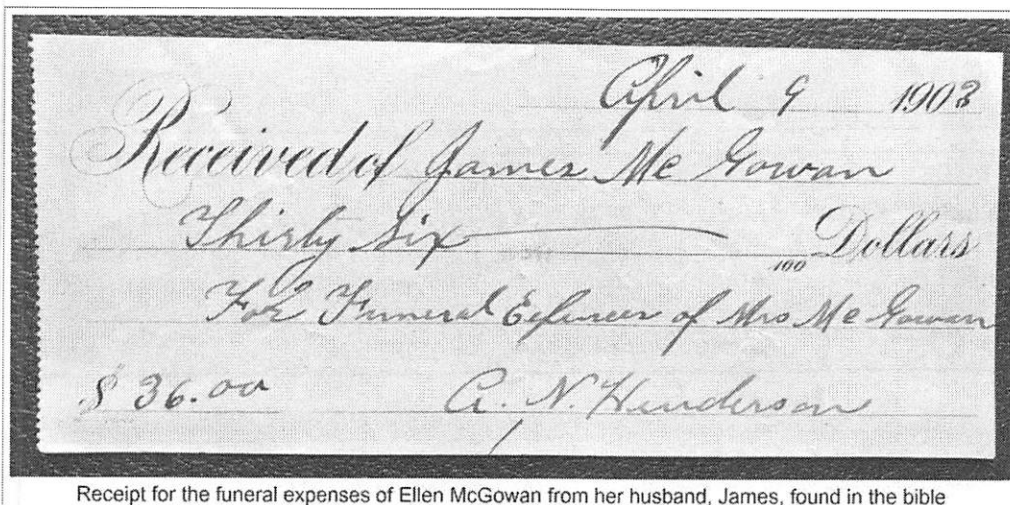 April 9 1903
Received of James Mc Gowan
Thirty Six 100 Dollars
For Funeral Expences of Mrs Mc Gowan
$ 36.00 A. N. Henderson
Receipt for the funeral expenses of Ellen McGowan from her husband, James, found in the bible